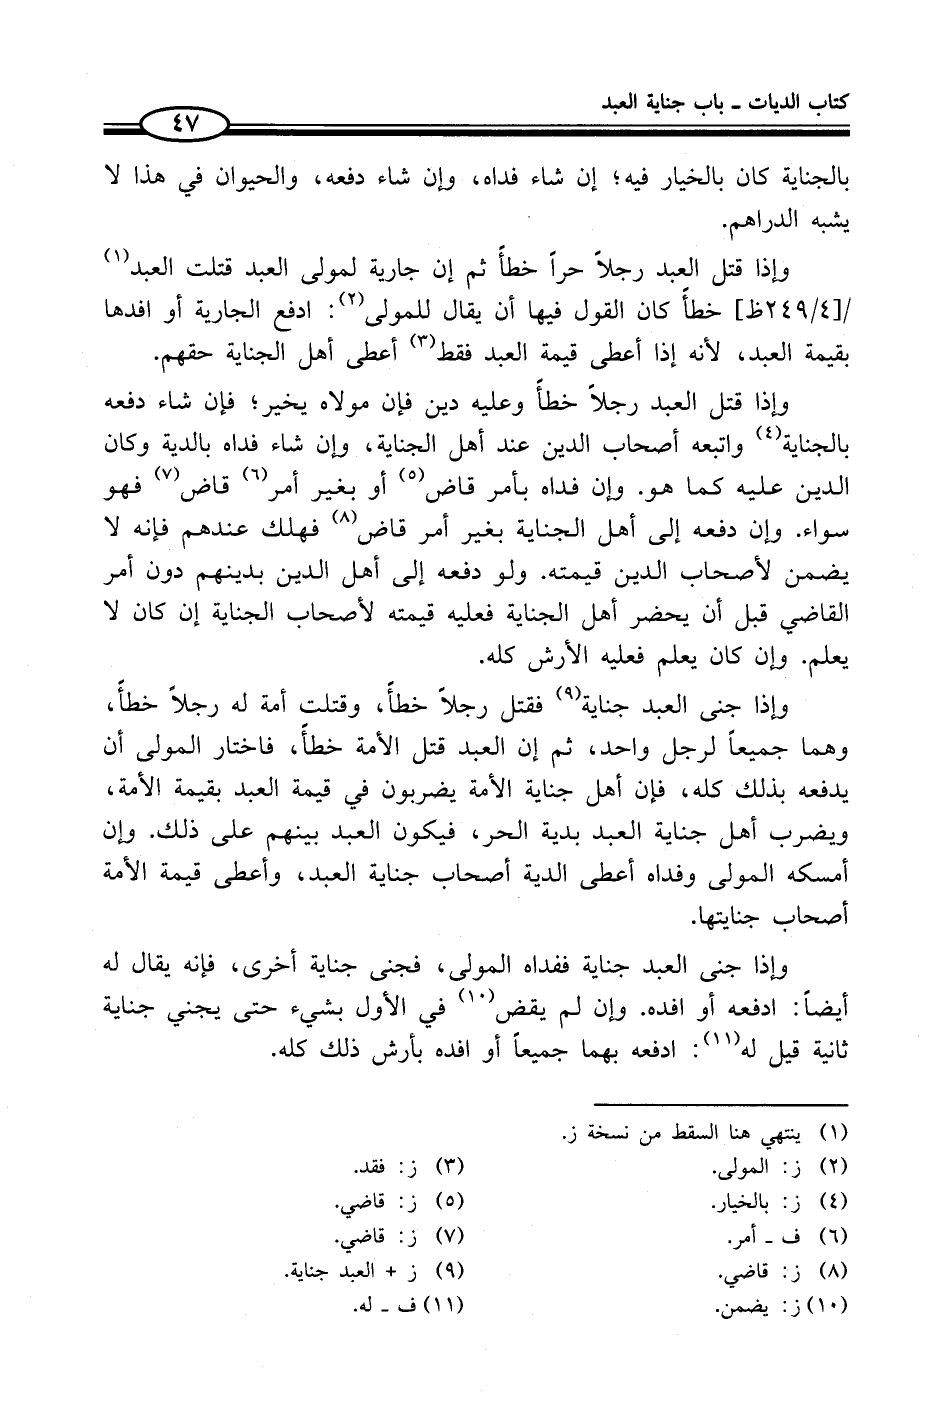 كتاب الديات - باب جناية العبد
٤٧
بالجناية كان بالخيار فيه؛ إن شاء فداه، وإن شاء دفعه، والحيوان في هذا لا
يشبه الدراهم.
وإذا قتل العبد رجلاً حراً خطأً ثم إن جارية لمولى العبد قتلت العبد(١)
/[٢٤٩/٤ظ] خطأً كان القول فيها أن يقال للمولى(٢): ادفع الجارية أو افدها
بقيمة العبد، لأنه إذا أعطى قيمة العبد فقط(٣) أعطى أهل الجناية حقهم.
وإذا قتل العبد رجلاً خطأً وعليه دين فإن مولاه يخير؛ فإن شاء دفعه
بالجناية(٤) واتبعه أصحاب الدين عند أهل الجناية، وإن شاء فداه بالدية وكان
الدين عليه كما هو. وإن فداه بأمر قاض(٥) أو بغير أمر(٦) قاض(٧) فهو
سواء. وإن دفعه إلى أهل الجناية بغير أمر قاض(٨) فهلك عندهم فإنه لا
يضمن لأصحاب الدين قيمته. ولو دفعه إلى أهل الدين بدينهم دون أمر
القاضي قبل أن يحضر أهل الجناية فعليه قيمته لأصحاب الجناية إن كان لا
يعلم. وإن كان يعلم فعليه الأرش كله.
وإذا جنى العبد جناية(٩) فقتل رجلاً خطأً، وقتلت أمة له رجلاً خطأً،
وهما جميعاً لرجل واحد، ثم إن العبد قتل الأمة خطأً، فاختار المولى أن
يدفعه بذلك كله، فإن أهل جناية الأمة يضربون في قيمة العبد بقيمة الأمة،
ويضرب أهل جناية العبد بدية الحر، فيكون العبد بينهم على ذلك. وإن
أمسكه المولى وفداه أعطى الدية أصحاب جناية العبد، وأعطى قيمة الأمة
أصحاب جنايتها.
وإذا جنى العبد جناية ففداه المولى، فجنى جناية أخرى، فإنه يقال له
أيضاً: ادفعه أو افده. وإن لم يقض(١٠) في الأول بشيء حتى يجني جناية
ثانية قيل له(١١): ادفعه بهما جميعاً أو افده بأرش ذلك كله.
(١) ينتهي هنا السقط من نسخة ز.
(٢) ز: المولى. (٣) ز: فقد.
(٤) ز: بالخيار. (٥) ز: قاضي.
(٦) ف - أمر. (٧) ز: قاضي.
(٨) ز: قاضي. (٩) ز + العبد جناية.
(١٠) ز: يضمن. (١١) ف - له.